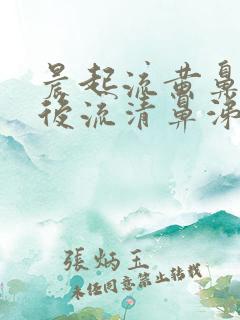 晨起流黄鼻
後流清鼻涕
張炳玉
未经同意禁止转载